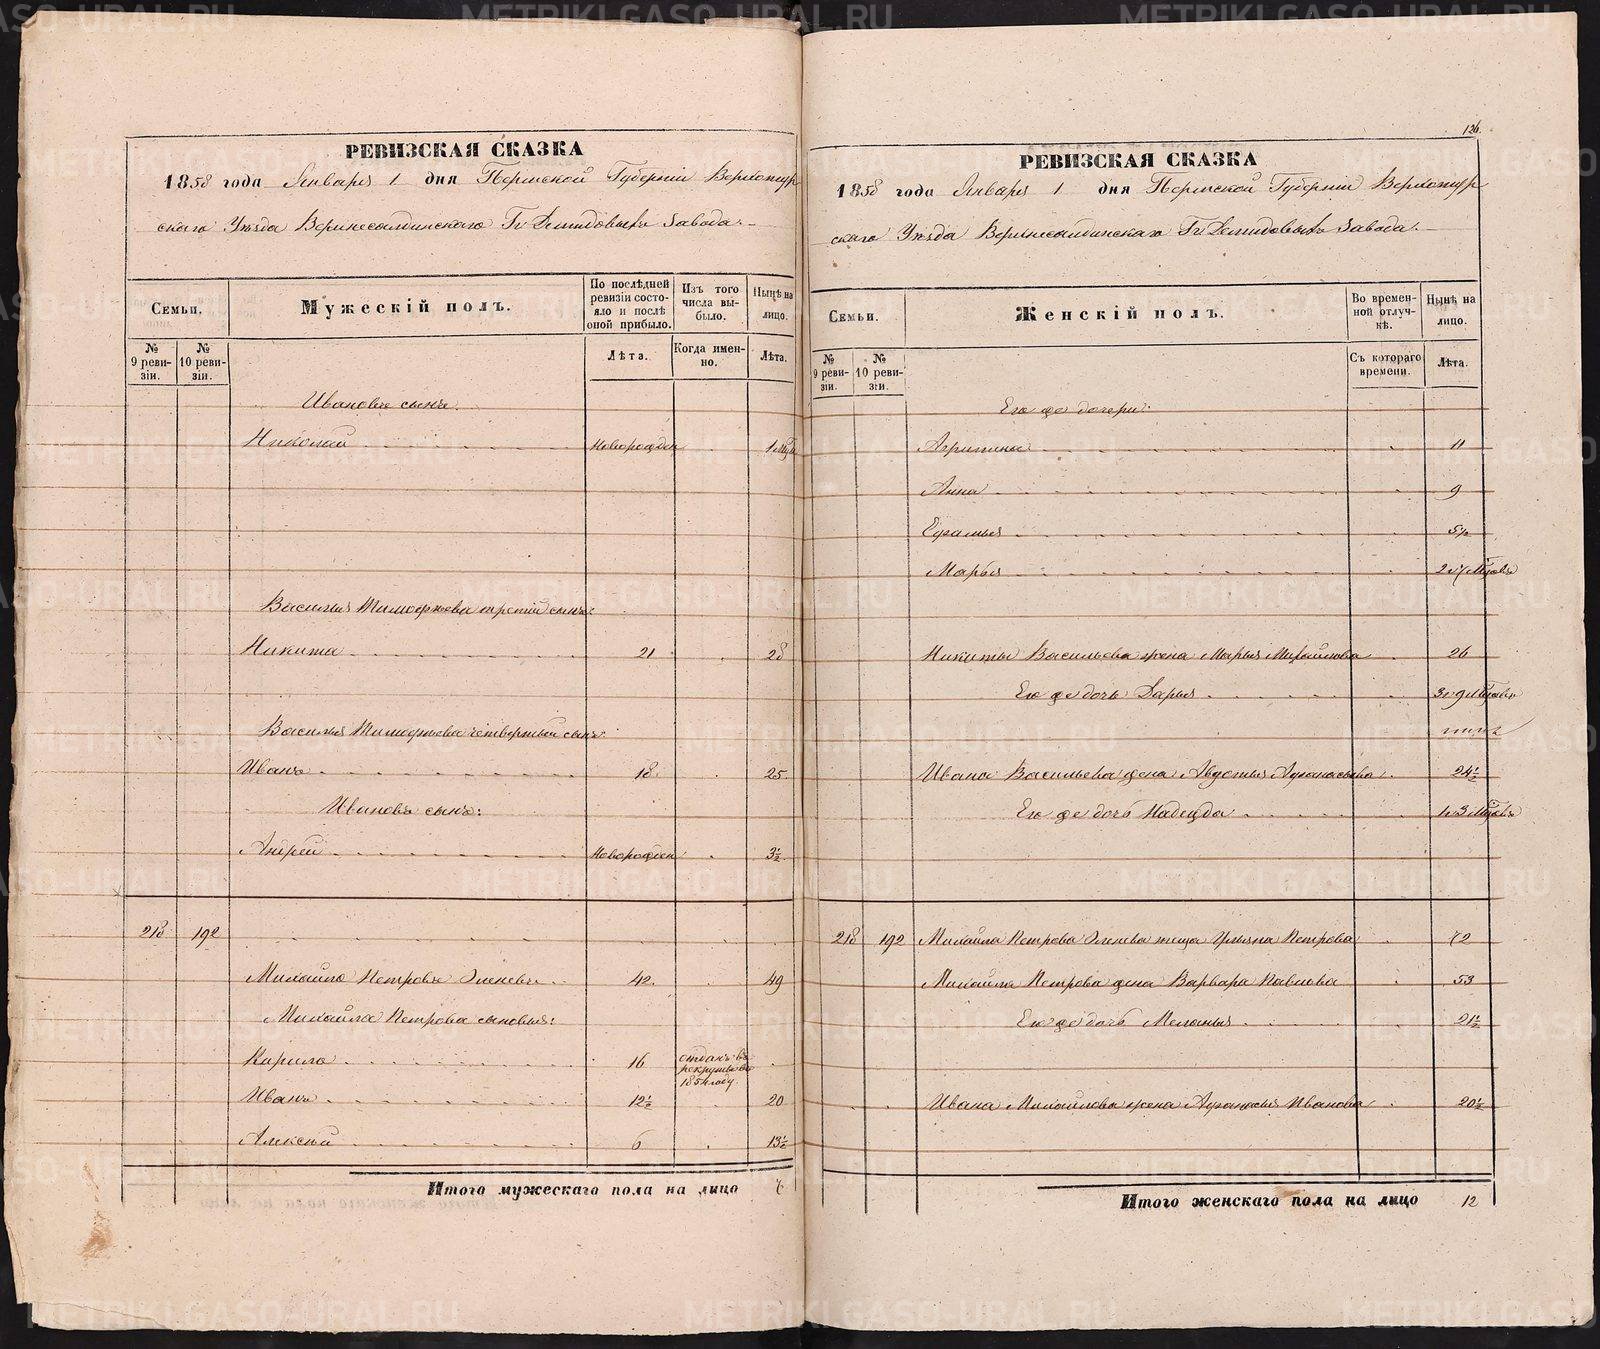 РЕВИЗСКАЯ СКАЗКА
1858 года Января 1 дня Пермской Губерніи Верхотур
скаго Уѣзда Верхнесалдинскаго Гг Демидовыхъ Завода.
Семьи.
Мужескій полъ.
По послѣдней ревизіи состояло и послѣ оной прибыло.
Изъ того числа выбыло.
Нынѣ на лицо.
№ 9 ревизіи.
№ 10 ревизіи.
Лѣта.
Когда именно.
Лѣта.
Ивановъ сынъ.
Николай новорожден 1
Василья Тимофеева третій сынъ:
Никита 21 28
Василья Тимофеева четвертый сынъ:
Иванъ 18 25
Ивановъ сынъ:
Андрей новорожден 3½
218 192
Михайло Петровъ 42 49
Михайла Петрова сыновья:
Кирило 16 отданъ въ рекруты въ 1854 году.
Иванъ 12½ 20
Алексѣй 6 13½
Итого мужескаго пола на лицо 7
126.
РЕВИЗСКАЯ СКАЗКА
1858 года Января 1 дня Пермской Губерніи Верхотур
скаго Уѣзда Верхнесалдинскаго Гг Демидовыхъ Завода.
Семьи.
Женскій полъ.
Во временной отлучкѣ.
Нынѣ на лицо.
№ 9 ревизіи.
№ 10 ревизіи.
Съ котораго времени.
Лѣта.
Его же дочери:
Агрипина 11
Анна 9
5½
Марья 2
Никиты Васильева жена Марья Михайлова 26
Его же дочь Дарья 3
Ивана Васильева жена Авдотья Афанасьева 24½
Его же дочь Надежда 1
218 192 Михайла Петрова теща Петрова 72
Михайла Петрова жена Варвара Павлова 53
Его же дочь Меланья 21½
Ивана Михайлова жена Афанасья Иванова 20½
Итого женскаго пола на лицо 12
METRIKI.GASO-URAL.RU